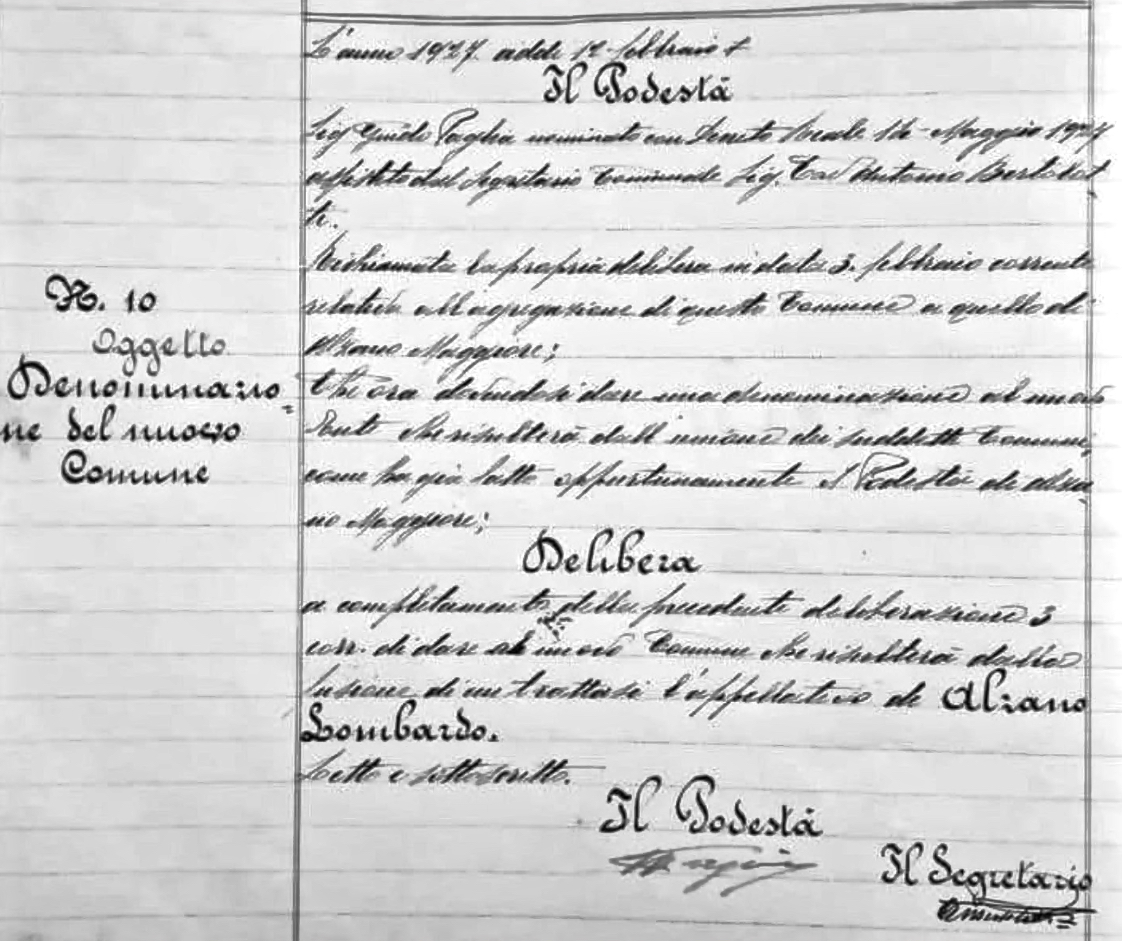 L'anno 1927 addi 12 febbraio
Il Podestà
Sig Guido Paglia nominato con Decreto Reale Maggio 1927
assistito dal Segretario Comunale Sig. Cav Antonio Bertolot
ti.
Richiamata la propria delibera in data 3. febbraio corrente
relativa all'agregazione di questo Comune a quello di
Alzano Maggiore;
N. 10
Oggetto
Denominazio=
ne del nuovo
Comune
Che ora dovendosi dare una denominazione al nuovo
Ente che risulterà dall'unione dei suddetti Comuni,
come ha già fatto opportunamente il Podestà di Alza-
no Maggiore;
Delibera
a completamento della precedente deliberazione 3
corr. di dare al nuovo Comune che risulterà dalla
fusione di cui trattasi l'appellativo di Alzano
Lombardo.
Letto e sottoscritto.
Il Podestà
Il Segretario